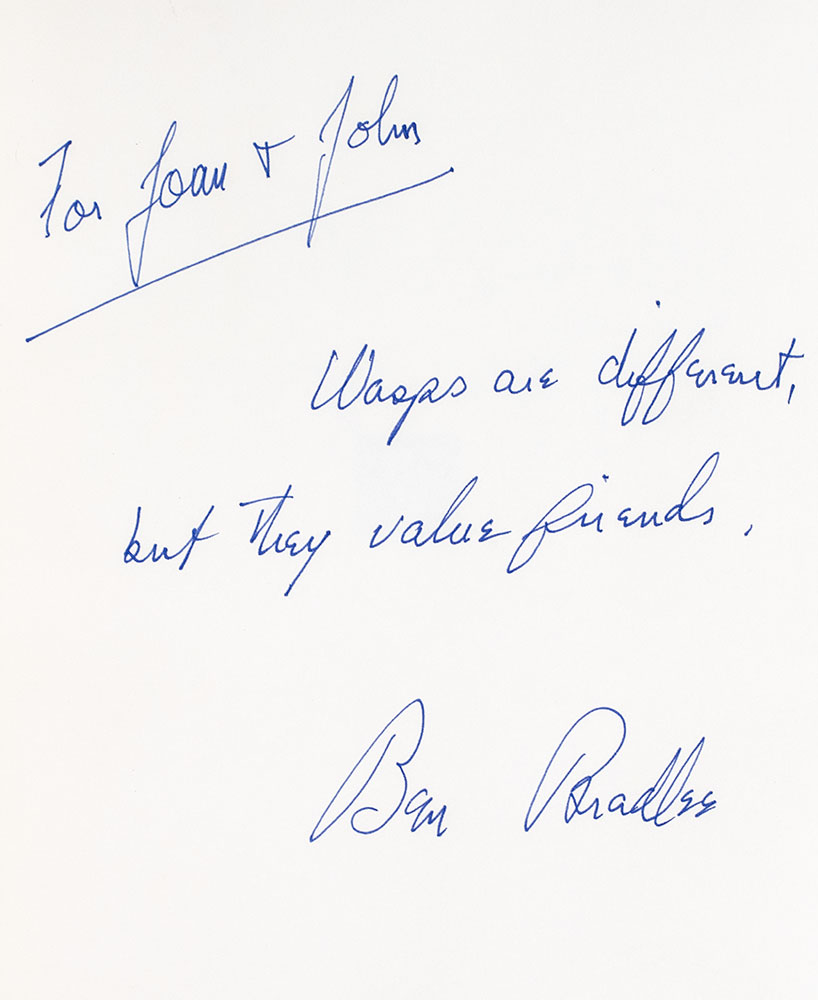 For Joan + John
Wasps are different,
but they value friends.
Ben Bradlee